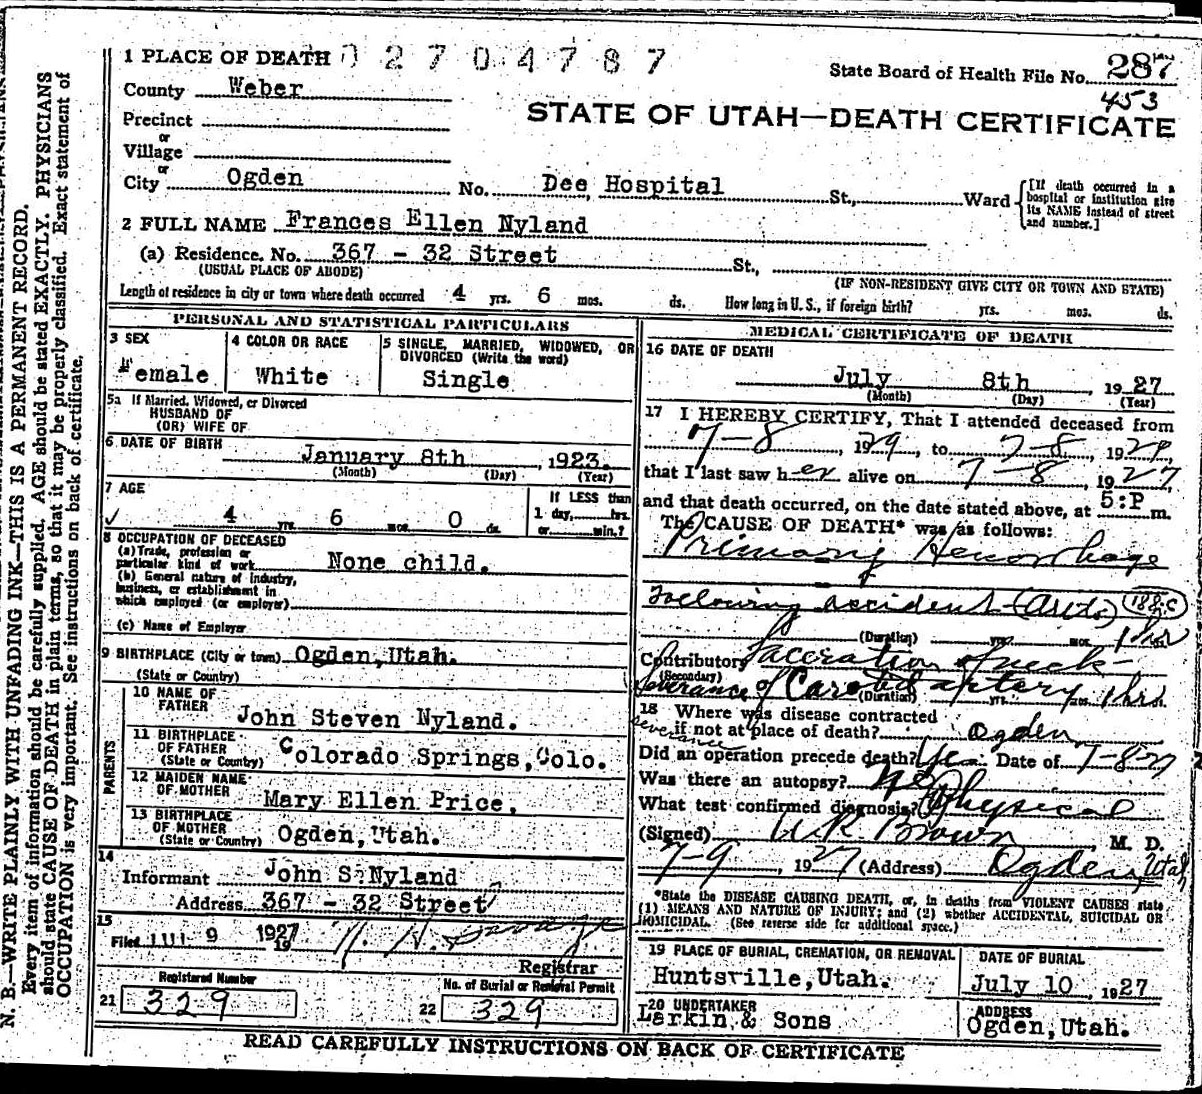 1 PLACE OF DEATH 02704787
State Board of Health File No. 287
453
County Weber
STATE OF UTAH—DEATH CERTIFICATE
Precinct
or
Village
or
City Ogden No. Dee Hospital St., Ward [If death occurred in a hospital or institution give its NAME instead of street and number.]
2 FULL NAME Frances Ellen Nyland
(a) Residence. No. 367 - 32 Street St.,
(USUAL PLACE OF ABODE) (IF NON-RESIDENT GIVE CITY OR TOWN AND STATE)
Length of residence in city or town where death occurred 4 yrs. 6 mos. ds. How long in U. S., if foreign birth? yrs. mos. ds.
PERSONAL AND STATISTICAL PARTICULARS
3 SEX
Female
4 COLOR OR RACE
White
5 SINGLE, MARRIED, WIDOWED, OR
DIVORCED (Write the word)
Single
5a If Married, Widowed, or Divorced
HUSBAND OF
(OR) WIFE OF
6 DATE OF BIRTH
January 8th, 1923.
(Month) (Day) (Year)
7 AGE
4 yrs. 6 mos. 0 ds.
If LESS than
1 day, hrs.
or min.?
8 OCCUPATION OF DECEASED
(a) Trade, profession or
particular kind of work None child.
(b) General nature of industry,
business, or establishment in
which employed (or employer)
(c) Name of Employer
9 BIRTHPLACE (City or town) Ogden, Utah.
(State or Country)
PARENTS
10 NAME OF
FATHER
John Steven Nyland.
11 BIRTHPLACE
OF FATHER
(State or Country) Colorado Springs, Colo.
12 MAIDEN NAME
OF MOTHER
Mary Ellen Price,
13 BIRTHPLACE
OF MOTHER
(State or Country) Ogden, Utah.
14
Informant John S. Nyland
Address 367 - 32 Street
15
Filed 9 1927
19
Registrar
Registered Number
21 329
No. of Burial or Removal Permit
22 329
MEDICAL CERTIFICATE OF DEATH
16 DATE OF DEATH
July 8th 1927
(Month) (Day) (Year)
17 I HEREBY CERTIFY, That I attended deceased from
7-8, 1929, to 7-8, 1929
that I last saw her alive on 7-8, 1927
and that death occurred, on the date stated above, at 5:P m.
The CAUSE OF DEATH* was as follows:
Primary Hemorrhage
Following accident (Auto) 188c
(Duration) yrs. mos. 1 hrs
Contributory Laceration of neck-
(Secondary)
Severance of Carotid artery 1 hrs
(Duration) yrs.
18 Where was disease contracted
severance if not at place of death? Ogden
Did an operation precede death? Yes. Date of 7-8-27
Was there an autopsy? No
What test confirmed diagnosis? Physical
(Signed) W.R. Brown, M. D.
7-9, 1927 (Address) Ogden, Utah
*State the DISEASE CAUSING DEATH, or, in deaths from VIOLENT CAUSES state
(1) MEANS AND NATURE OF INJURY; and (2) whether ACCIDENTAL, SUICIDAL OR
HOMICIDAL. (See reverse side for additional space.)
19 PLACE OF BURIAL, CREMATION, OR REMOVAL
Huntsville, Utah.
DATE OF BURIAL
July 10, 1927
20 UNDERTAKER
Larkin & Sons
ADDRESS
Ogden, Utah.
READ CAREFULLY INSTRUCTIONS ON BACK OF CERTIFICATE
N. B.—WRITE PLAINLY WITH UNFADING INK—THIS IS A PERMANENT RECORD.
Every item of information should be carefully supplied. AGE should be stated EXACTLY. PHYSICIANS
should state CAUSE OF DEATH in plain terms, so that it may be properly classified. Exact statement of
OCCUPATION is very important. See instructions on back of certificate.